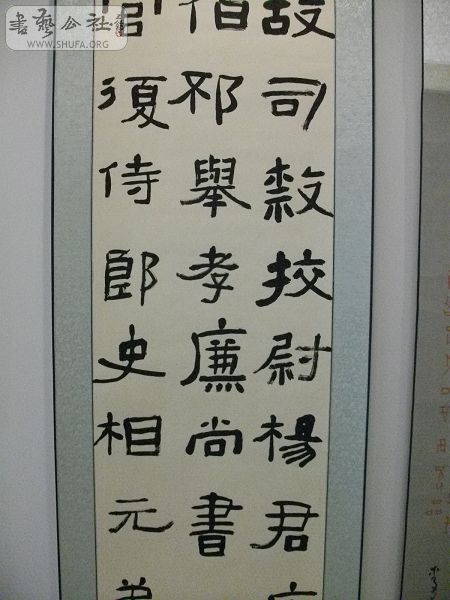 書藝公社
WWW.SHUFA.ORG
故司隸挍尉楊君
伯邳舉孝廉尚書
官復侍郎史相元